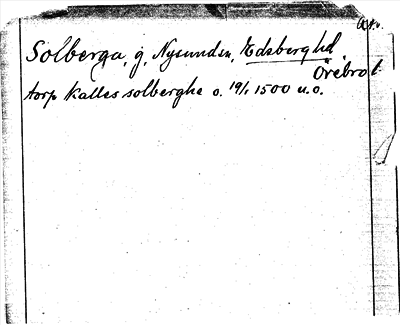 Solberga, g, Nysunden, Edsberg hd
Örebro l.
torp kalles solberghe o. 19/1 1500 u.o.